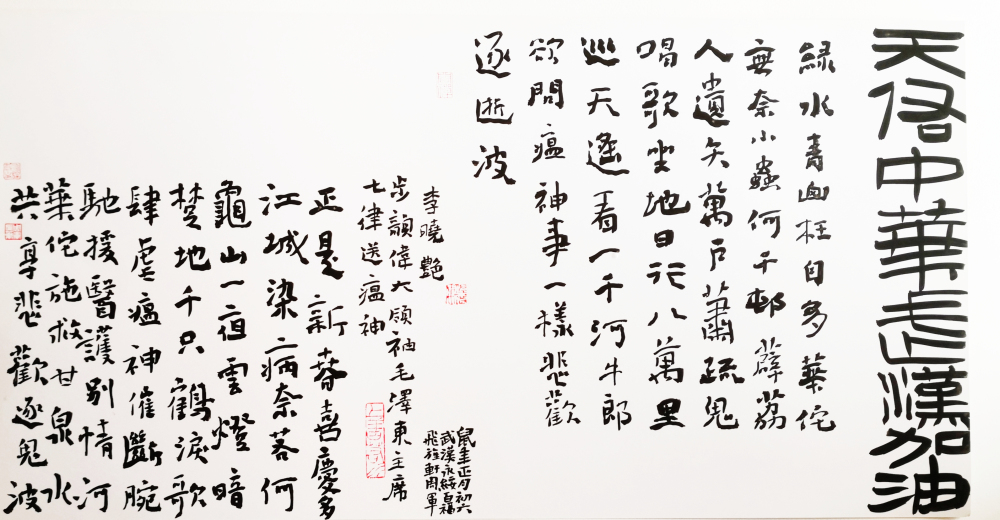 天佑中華武漢加油
綠水青山枉自多華佗
無奈小蟲何千邨薜荔
人遺矢萬戶蕭疏鬼
唱歌坐地日行八萬里
巡天遙看一千河牛郎
欲問瘟神事一樣悲歡
逐逝波
鼠年正月初六
武漢永綏
軒周軍
李曉艷
步韻偉大領袖毛澤東主席
七律送瘟神
正是新春喜慶多
江城染病奈若何
龜山一夜雲燈暗
楚地千只鶴淚歌
肆虐瘟神催斷腕
馳援醫護別情河
華佗施救甘泉水
共享悲歡逐鬼波